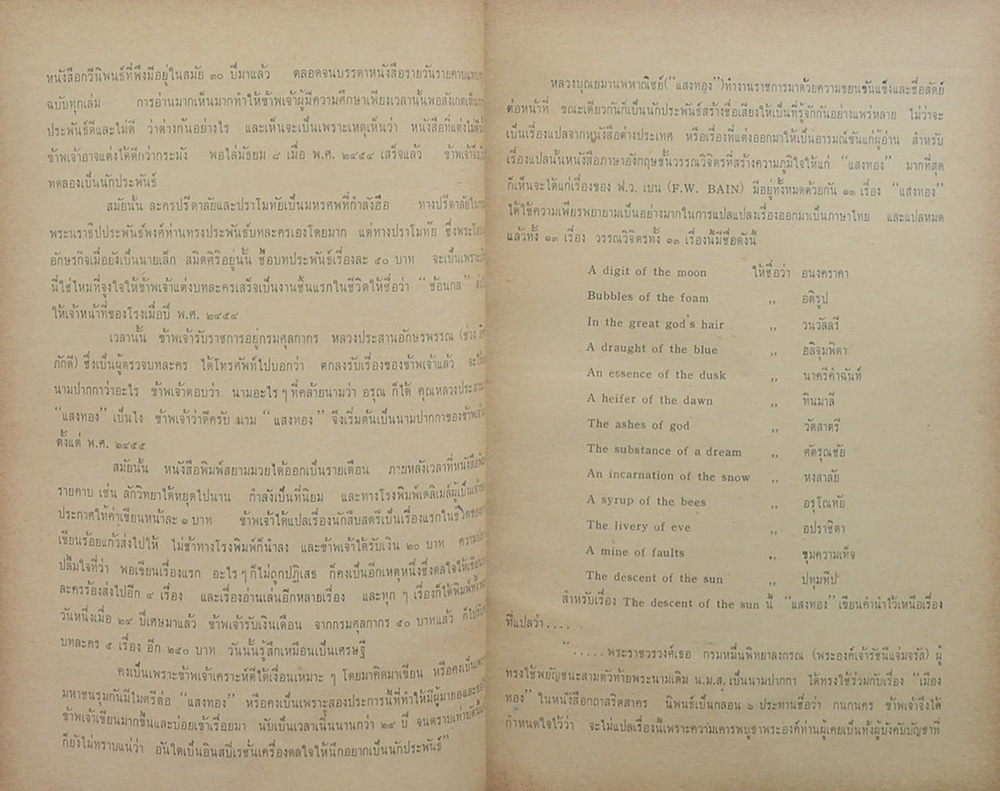 หนังสือกวีนิพนธ์ที่พึงมีอยู่ในสมัย ๓๐ ปีมาแล้ว ตลอดจนบรรดาหนังสือรายวันรายคาบแทบ
ฉบับทุกเล่ม การอ่านมากเห็นมากทำให้ข้าพเจ้าผู้มีความศึกษาเพียงเวลานั้นพอสังเกตเห็น
ประพันธ์ดีและไม่ดี ว่าต่างกันอย่างไร และเห็นจะเป็นเพราะเหตุเห็นว่า หนังสือที่แต่งไม่
ข้าพเจ้าอาจแต่งได้ดีกว่ากระมัง พอไล่มัธยม ๘ เมื่อ พ.ศ. ๒๔๕๔ เสร็จแล้ว ข้าพเจ้า
ทดลองเป็นนักประพันธ์
สมัยนั้น ละครปรีดาลัยและปราโมทัยเป็นมหรศพที่กำลังฮือ ทางปรีดาลัย
พระนราธิปประพันธ์พงศ์ท่านทรงประพันธ์บทละครเองโดยมาก แต่ทางปราโมทัย ซึ่งพระ
อักษรกิจเมื่อยังเป็นนายเล็ก สมิตศิริอยู่นั้น ซื้อบทประพันธ์เรื่องละ ๕๐ บาท จะเป็นเพราะ
นี่ใช่ไหมที่จูงใจให้ข้าพเจ้าแต่งบทละครเสร็จเป็นงานชิ้นแรกในชีวิตให้ชื่อว่า “ซ้อนกล”
ให้เจ้าหน้าที่ของโรงเมื่อปี พ.ศ. ๒๔๕๔
เวลานั้น ข้าพเจ้ารับราชการอยู่กรมศุลกากร หลวงประสานอักษรพรรณ (ช่วง
ภักดี) ซึ่งเป็นผู้ตรวจบทละคร ได้โทรศัพท์ไปบอกว่า ตกลงรับเรื่องของข้าพเจ้าแล้ว จะ
นามปากกาว่าอะไร ข้าพเจ้าตอบว่า นามอะไร ๆ ที่คล้ายนามว่า อรุณ ก็ได้ คุณหลวงประสาน
“แสงทอง” เป็นไง ข้าพเจ้าว่าดีครับ นาม “แสงทอง” จึงเริ่มต้นเป็นนามปากกาของข้าพเจ้า
ตั้งแต่ พ.ศ. ๒๔๕๕
สมัยนั้น หนังสือพิมพ์สยามมวยได้ออกเป็นรายเดือน ภายหลังเวลาที่หนังสือ
รายคาบ เช่น ลักวิทยาได้หยุดไปนาน กำลังเป็นที่นิยม และทางโรงพิมพ์เดลิเมล์ผู้เป็นเจ้า
ประกาศให้ค่าเขียนหน้าละ ๑ บาท ข้าพเจ้าได้แปลเรื่องนักสืบสตรีเป็นเรื่องแรกในชีวิต
เขียนร้อยแก้วส่งไปให้ ไม่ช้าทางโรงพิมพ์ก็นำลง และข้าพเจ้าได้รับเงิน ๒๐ บาท
ปลื้มใจที่ว่า พอเขียนเรื่องแรก อะไร ๆ ก็ไม่ถูกปฏิเสธ ก็คงเป็นอีกเหตุหนึ่งซึ่งดลใจให้เขียน
ละครร้องส่งไปอีก ๔ เรื่อง และเรื่องอ่านเล่นอีกหลายเรื่อง และทุก ๆ เรื่องก็ได้พิมพ์
วันหนึ่งเมื่อ ๒๙ ปีเศษมาแล้ว ข้าพเจ้ารับเงินเดือน จากกรมศุลกากร ๕๐ บาทแล้ว
บทละคร ๕ เรื่อง อีก ๒๕๐ บาท วันนั้นรู้สึกเหมือนเป็นเศรษฐี
คงเป็นเพราะข้าพเจ้าเคราะห์ดีได้เงื่อนเหมาะ ๆ โดยมาคิดมาเขียน หรือคงเป็นเพราะ
มหาชนรุมกันมีไมตรีต่อ “แสงทอง” หรือคงเป็นเพราะสองประการนี้ที่ทำให้มีผู้มายอ
ข้าพเจ้าเขียนมากขึ้นและบ่อยเข้าเรื่อยมา นับเป็นเวลาเนิ่นนานกว่า ๒๙ ปี จนตราบเท่า
ก็ยังไม่ทราบแน่ว่า อันใดเป็นอินสปีเรชั่นเครื่องดลใจให้นึกอยากเป็นนักประพันธ์”
หลวงบุณยมานพพาณิชย์(“แสงทอง”)ทำงานราชการมาด้วยความขยนขันแข็งและซื่อสัตย์
ต่อหน้าที่ ขณะเดียวกันก็เป็นนักประพันธ์สร้างชื่อเสียงให้เป็นที่รู้จักกันอย่างแพร่หลาย ไม่ว่าจะ
เป็นเรื่องแปลจากหนังสือต่างประเทศ หรือเรื่องที่แต่งออกมาให้เป็นอารมณ์ขันแก่ผู้อ่าน สำหรับ
เรื่องแปลนั้นหนังสือภาษาอังกฤษชั้นวรรณวิจิตรที่สร้างความภูมิใจให้แก่ “แสงทอง” มากที่สุด
ก็เห็นจะได้แก่เรื่องของ ฟ.ว. เบน (F.W. BAIN) มีอยู่ทั้งหมดด้วยกัน ๑๓ เรื่อง “แสงทอง”
ได้ใช้ความเพียรพยายามเป็นอย่างมากในการแปลแปลงเรื่องออกมาเป็นภาษาไทย และแปลหมด
แล้วทั้ง ๑๓ เรื่อง วรรณวิจิตรทั้ง ๑๓ เรื่องนี้มีชื่อดังนี้
A digit of the moon ให้ชื่อว่า อนงคราคา
Bubbles of the foam ,, อติรูป
In the great god's hair ,, วนวัลลรี
A draught of the blue ,, อลิจุมพิตา
An essence of the dusk ,, นาครีคำฉันท์
A heifer of the dawn ,, ทินมาลี
The ashes of god ,, วัตสาตรี
The substance of a dream ,, ศัตรุณชัย
An incarnation of the snow ,, หงสาลัย
A syrup of the bees ,, อรุโณทัย
The livery of eve ,, อปราชิตา
A mine of faults ,, ขุมความเท็จ
The descent of the sun ,, ปทุมทีป
สำหรับเรื่อง The descent of the sun นี้ “แสงทอง” เขียนคำนำไว้เหนือเรื่อง
ที่แปลว่า....
“.....พระราชวรวงศ์เธอ กรมหมื่นพิทยาลงกรณ (พระองค์เจ้ารัชนีแจ่มจรัส) ผู้
ทรงใช้พยัญชนะสามตัวท้ายพระนามเดิม น.ม.ส. เป็นนามปากกา ได้ทรงใช้ร่วมกับเรื่อง “เมือง
ทอง” ในหนังสือกถาสริตสาคร นิพนธ์เป็นกลอน ๖ ประทานชื่อว่า กนกนคร ข้าพเจ้าจึงได้
กำหนดใจไว้ว่า จะไม่แปลเรื่องนี้เพราะความเคารพบูชาพระองค์ท่านผู้เคยเป็นทั้งผู้บังคับบัญชาที่